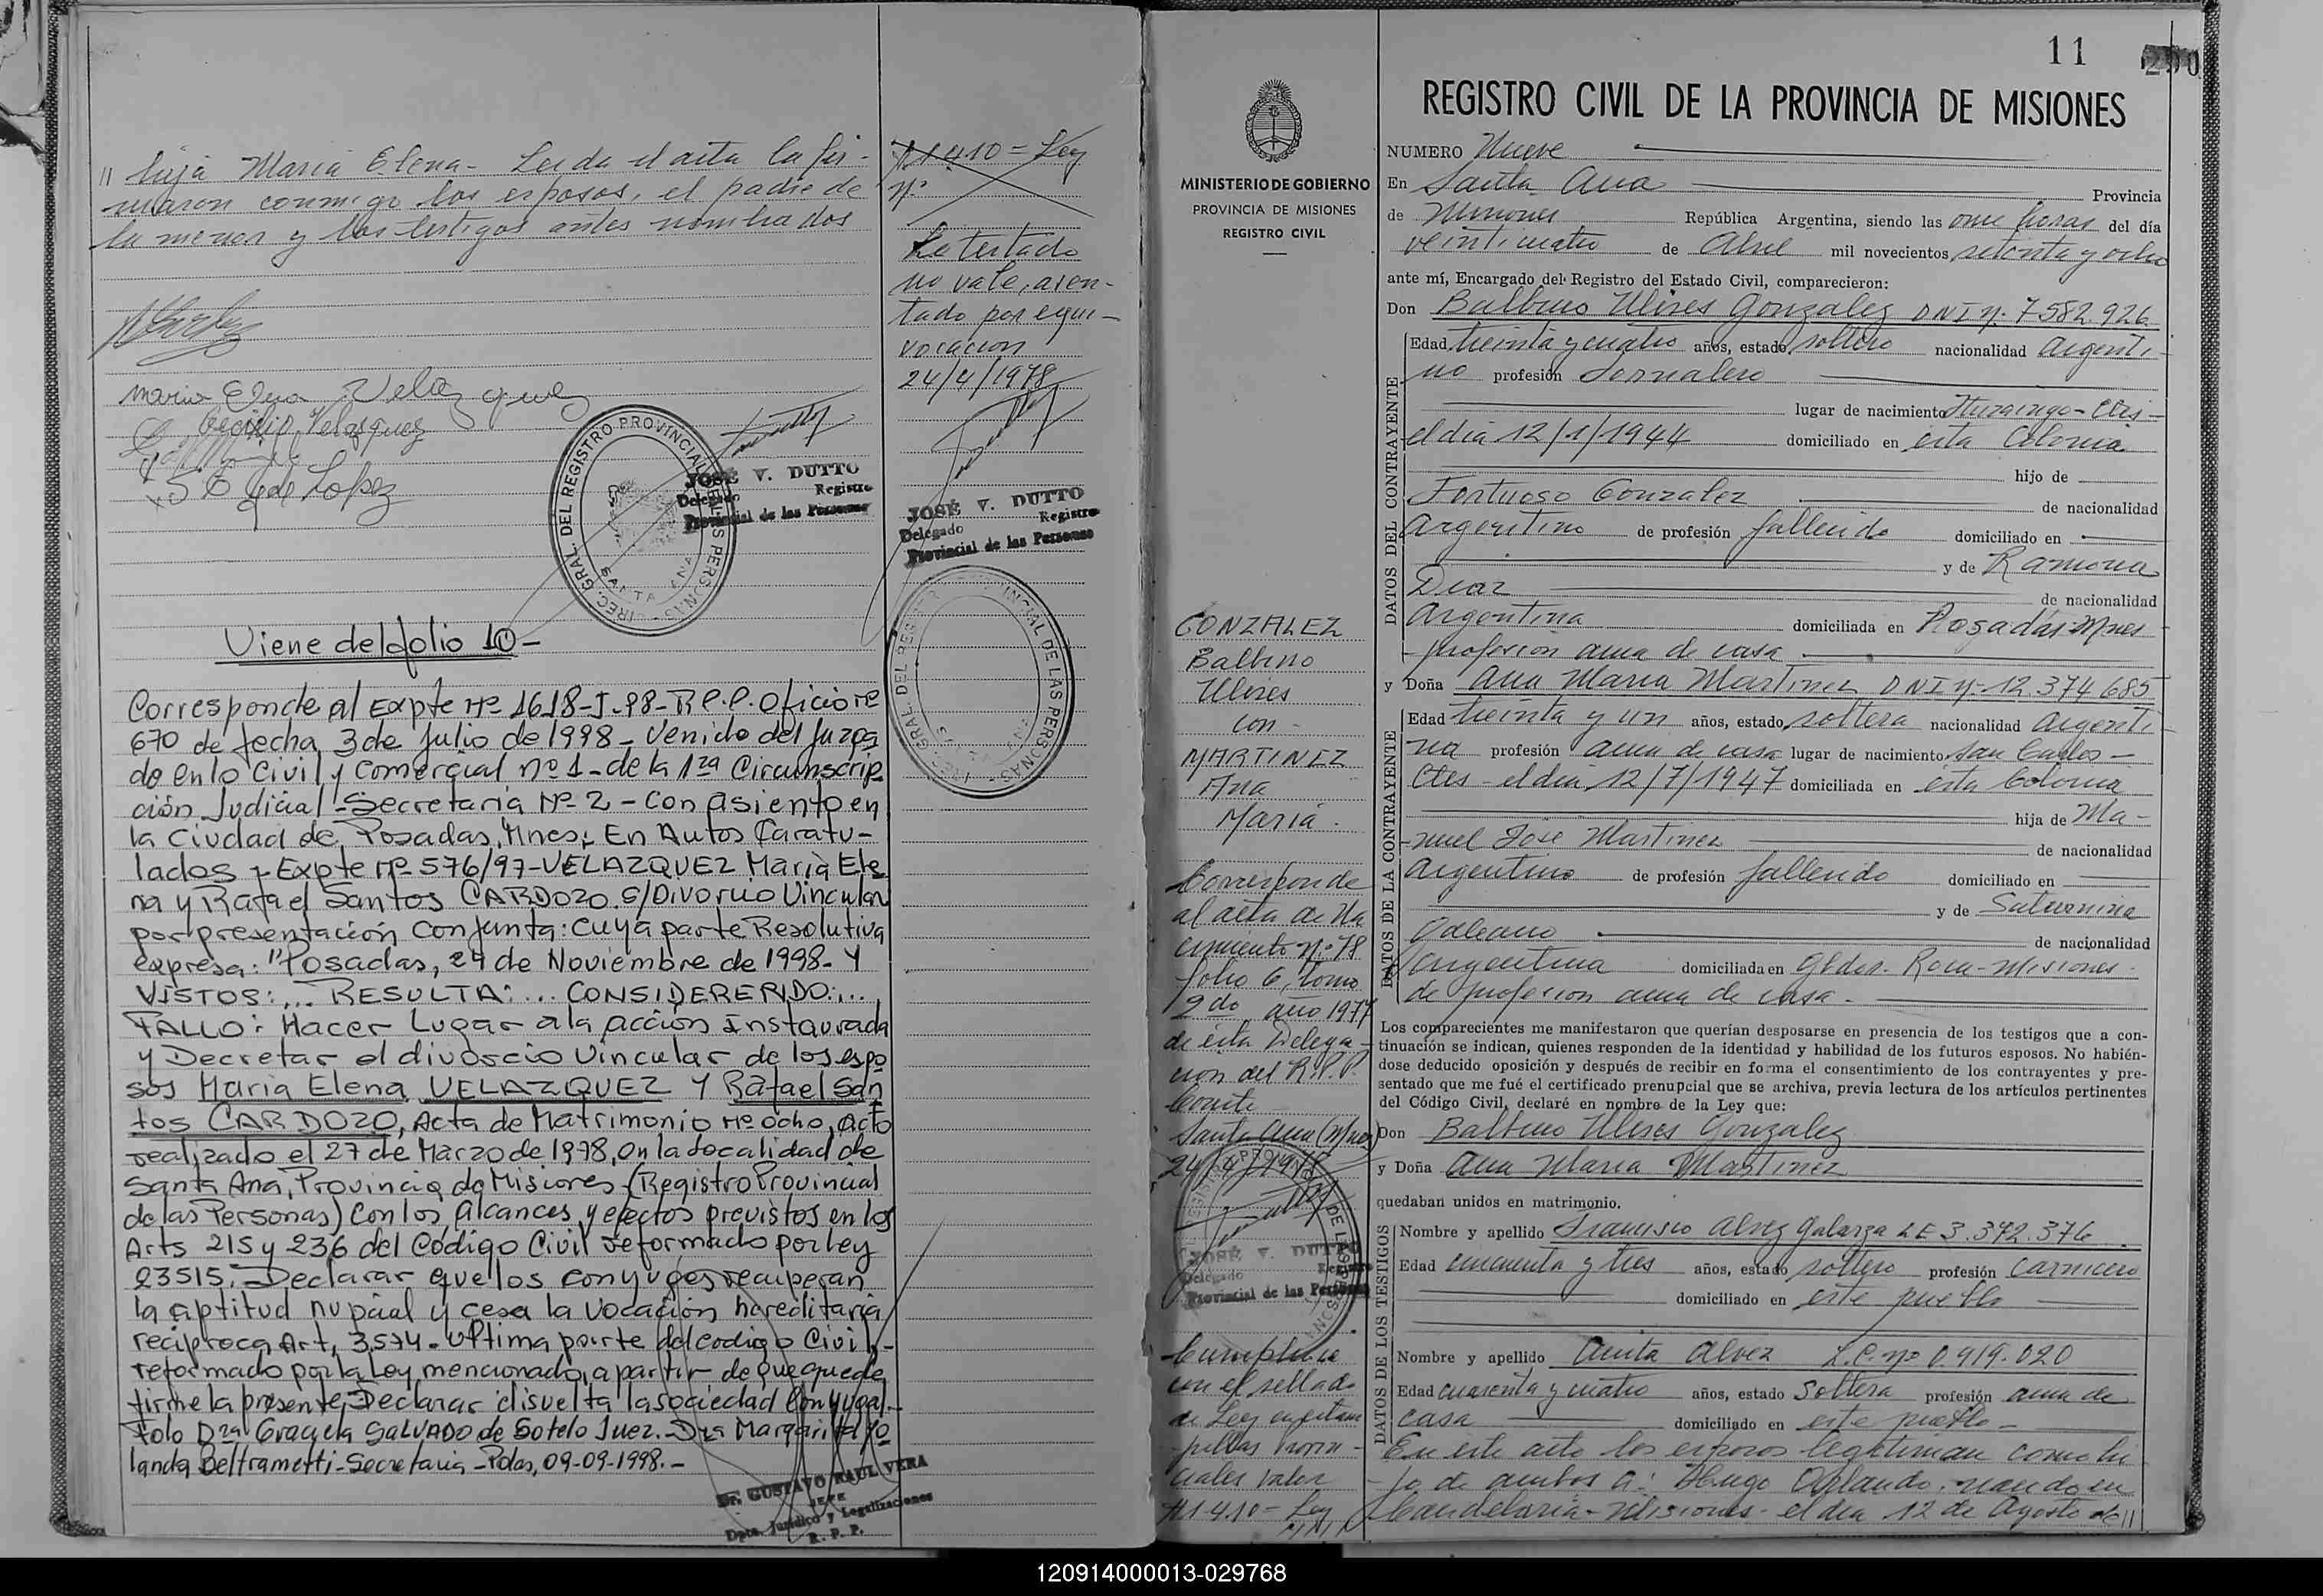 " hija Maria Elena - Leida el acta la fir-
maron conmigo los esposos, el padre de
la menor y los testigos antes nombrados
$1410 = Ley
nº
Lo testado
no vale, asen-
tado por equi-
vocación
24/4/1978
Maria Elena Velazquez
Cecilio Velasquez
de Lopez
DIREC. GRAL. DEL REGISTRO PROVINCIAL DE LAS PERSONAS
SANTA ANA
JOSÉ V. DUTTO
Delegado Registro
Provincial de las Personas
JOSÉ V. DUTTO
Delegado Registro
Provincial de las Personas
Viene del folio 10-
Corresponde al Expte Nº 1618-J-98-R.P.P. Oficio Nº
670 de fecha 3 de Julio de 1998- Venido del Juzga
do en lo Civil y Comercial nº 1- de la 1ra Circunscrip-
ción Judicial -Secretaria Nº 2 - Con asiento en
la Ciudad de Posadas, Mnes; En Autos Caratu-
lados - Expte Nº 576/97-VELAZQUEZ Maria Ele
na y Rafael Santos CARDOZO. S/Divorcio Vincular
por presentación Conjunta: cuya parte Resolutiva
expresa: "Posadas, 24 de Noviembre de 1998- Y
VISTOS:... RESULTA:... CONSIDERERNDO:...
FALLO: Hacer Lugar a la acción Instaurada
y Decretar el divorcio Vincular de los espo
sos Maria Elena VELAZQUEZ Y Rafael San
tos CARDOZO, Acta de Matrimonio Nº ocho, acto
realizado el 27 de Marzo de 1978, en la localidad de
Santa Ana, Provincia de Misiones (Registro Provincial
de las Personas) Con los alcances y efectos previstos en los
Arts 215 y 236 del Código Civil reformado por ley
23515. Declarar que los conyuges recuperan
la aptitud nupcial y cesa la vocación hereditaria
reciproca Art, 3.574. ultima parte del Codigo Civil,-
reformado por la Ley mencionada, a partir de que quede
firme la presente, Declarar disuelta la sociedad Conyugal.-
Folo Dra Graciela SALVADO de Sotelo Juez. Dra Margarita Yo
landa Beltrametti-Secretaria-Pdas, 09-09-1998.-
Dr. GUSTAVO RAUL VERA
JEFE
Dpto. Jurídico y Legalizaciones
R. P. P.
11
REGISTRO CIVIL DE LA PROVINCIA DE MISIONES
MINISTERIO DE GOBIERNO
PROVINCIA DE MISIONES
REGISTRO CIVIL
NUMERO Nueve
En Santa Ana Provincia
de Misiones República Argentina, siendo las once horas del día
veinticuatro de Abril mil novecientos setenta y ocho
ante mí, Encargado del Registro del Estado Civil, comparecieron:
Don Balbino Ulises Gonzalez DNI nº 7.582.926
DATOS DEL CONTRAYENTE
Edad treinta y cuatro años, estado soltero nacionalidad argenti-
no profesión Jornalero
lugar de nacimiento Ituzaingo - Ctes -
el dia 12/1/1944 domiciliado en esta Colonia
hijo de
Fortuoso Gonzalez de nacionalidad
argentino de profesión fallecido domiciliado en
y de Ramona
Diaz de nacionalidad
argentina domiciliada en Posadas Mnes
- profesion ama de casa
y Doña Ana Maria Martinez DNI nº 12.374.685
DATOS DE LA CONTRAYENTE
Edad treinta y un años, estado soltera nacionalidad argenti
na profesión ama de casa lugar de nacimiento San Carlos -
Ctes - el dia 12/7/1947 domiciliada en esta Colonia
hija de Ma-
nuel José Martinez de nacionalidad
argentino de profesión fallecido domiciliado en
y de Saturnina
Galeano de nacionalidad
argentina domiciliada en Gbdor. Roca - Misiones -
de profesion ama de casa -
Los comparecientes me manifestaron que querían desposarse en presencia de los testigos que a con-
tinuación se indican, quienes responden de la identidad y habilidad de los futuros esposos. No habién-
dose deducido oposición y después de recibir en forma el consentimiento de los contrayentes y pre-
sentado que me fué el certificado prenupcial que se archiva, previa lectura de los artículos pertinentes
del Código Civil, declaré en nombre de la Ley que:
Don Balbino Ulises Gonzalez
y Doña Ana Maria Martinez
quedaban unidos en matrimonio.
DATOS DE LOS TESTIGOS
Nombre y apellido Francisco Alvez Galarza LE 3.392.376
Edad cincuenta y tres años, estado soltero profesión carnicero
domiciliado en este pueblo
Nombre y apellido Anita Alvez L.C. nº 0.919.020
Edad cuarenta y cuatro años, estado Soltera profesión ama de
casa domiciliado en este pueblo -
En este acto los esposos legitiman como hi
jo de ambos a: Hugo Orlando, nacido en
Candelaria - Misiones - el dia 12 de Agosto de "
GONZALEZ
Balbino
Ulises
con -
MARTINEZ
Ana
Maria -
Corresponde
al acta de Na
cimiento Nº 78
folio 6, tomo
2do año 1977
de esta Delega-
cion del R.P.P.
Conste
Santa Ana (Mnes)
24/4/1978
JOSÉ V. DUTTO
Delegado Registro
Provincial de las Personas
Cumplese
con el sellado
de Ley en estam
pillas Provin-
ciales valor
$1.410 = Ley
120914000013-029768